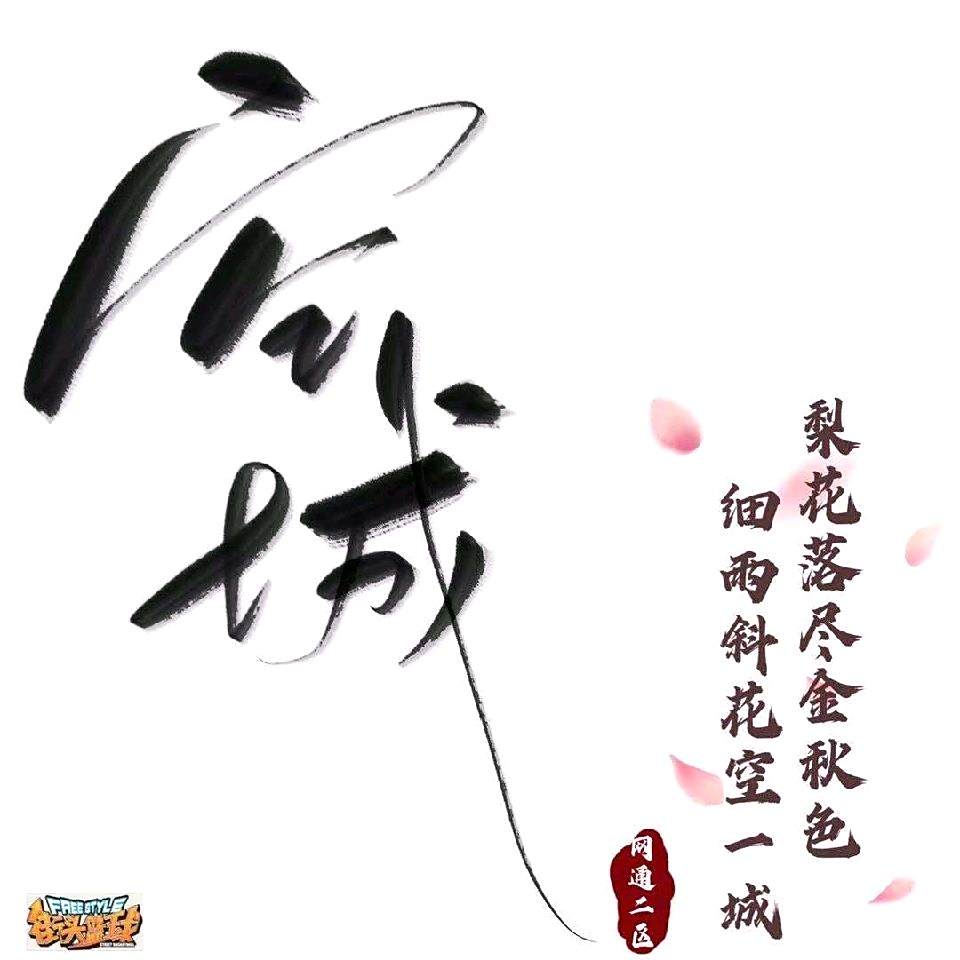 空城
梨花落尽金秋色
细雨斜花空一城
网通二区
FREESTYLE
街头篮球